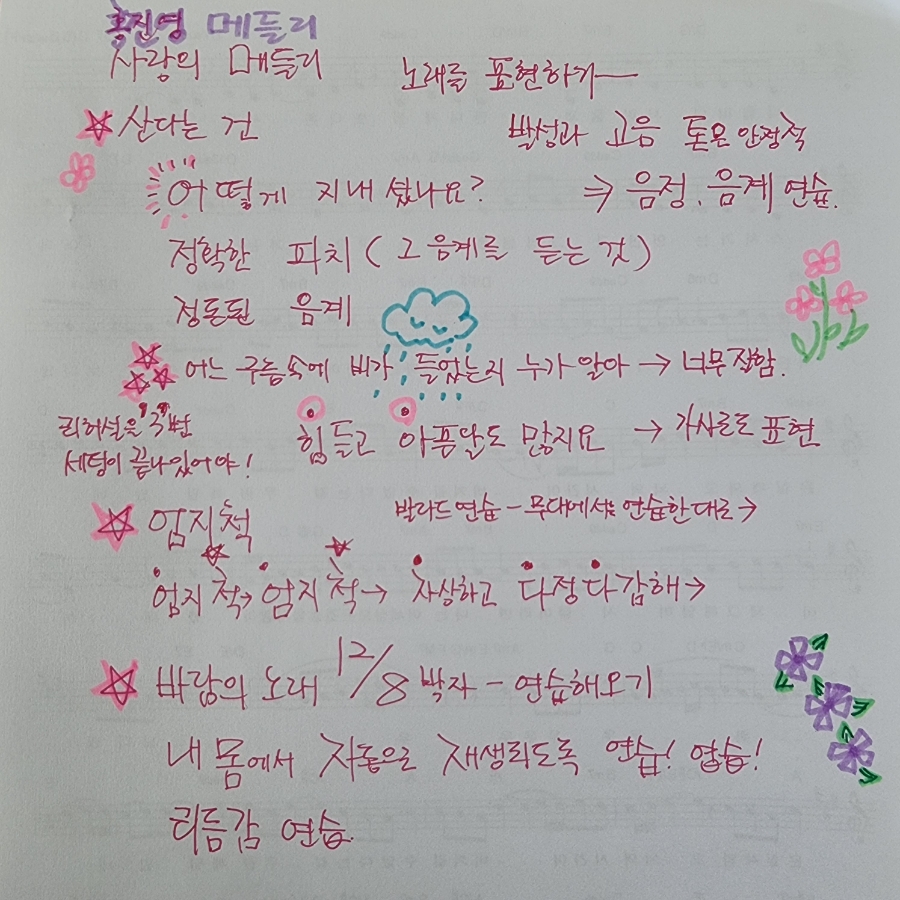 홍진영 메들리
사랑의 메들리
노래를 표현하기
☆ 산다는 건
발성과 고음 톤은 안정적
어떻게 지내셨나요?
⇒ 음정, 음계 연습.
정확한 피치 (그 음계를 듣는 것)
정돈된 음계
어느 구름속에 비가 들었는지 누가 알아 → 너무 잘함.
리허설은 3번
세팅이 끝나있어야!
힘들고 아픈날도 많지요 → 가사로도 표현
☆ 엄지척
발라드 연습 - 무대에서는 연습한대로 →
엄지 척 → 엄지 척 → 자상하고 다정다감해 →
☆ 바람의 노래 12/8 박자 - 연습해오기
내 몸에서 자동으로 재생되도록 연습! 연습!
리듬감 연습.